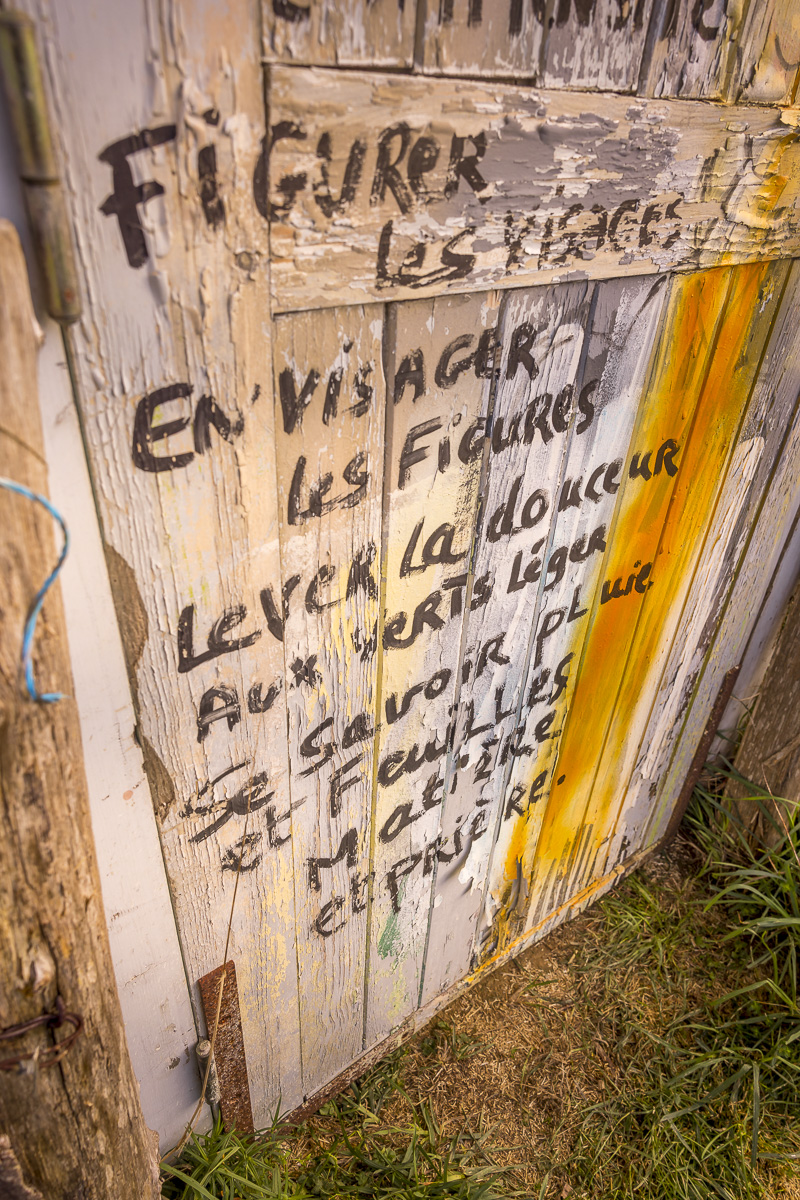 FiGURer
Les VISAGES
EN'VisAGER
Les FiGURes
Lever la douceur
Aux verts léger
Se savoir pluie
et Feuilles
Matière
et prière.